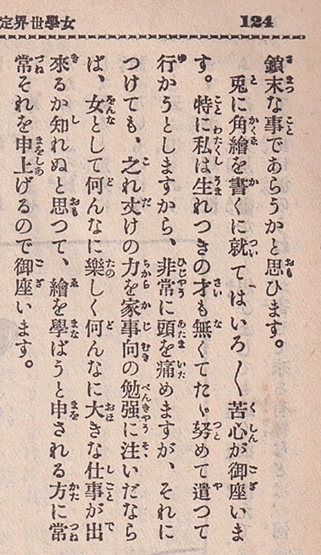 124
女學世界定
鎖末な事であらうかと思ひます。
兎に角繪を書くに就てはいろ〱苦心が御座いま
す。特に私は生れつきの才も無くてたゞ努めて遣つて
行かうとしますから、非常に頭を痛めますが、それに
つけても、之れ丈けの力を家事向の勉强に注いだなら
ば、女として何んなに樂しく何んなに大きな仕事が出
來るか知れぬと思つて、繪を學ばうと申される方に常
常それを申上げるので御座います。